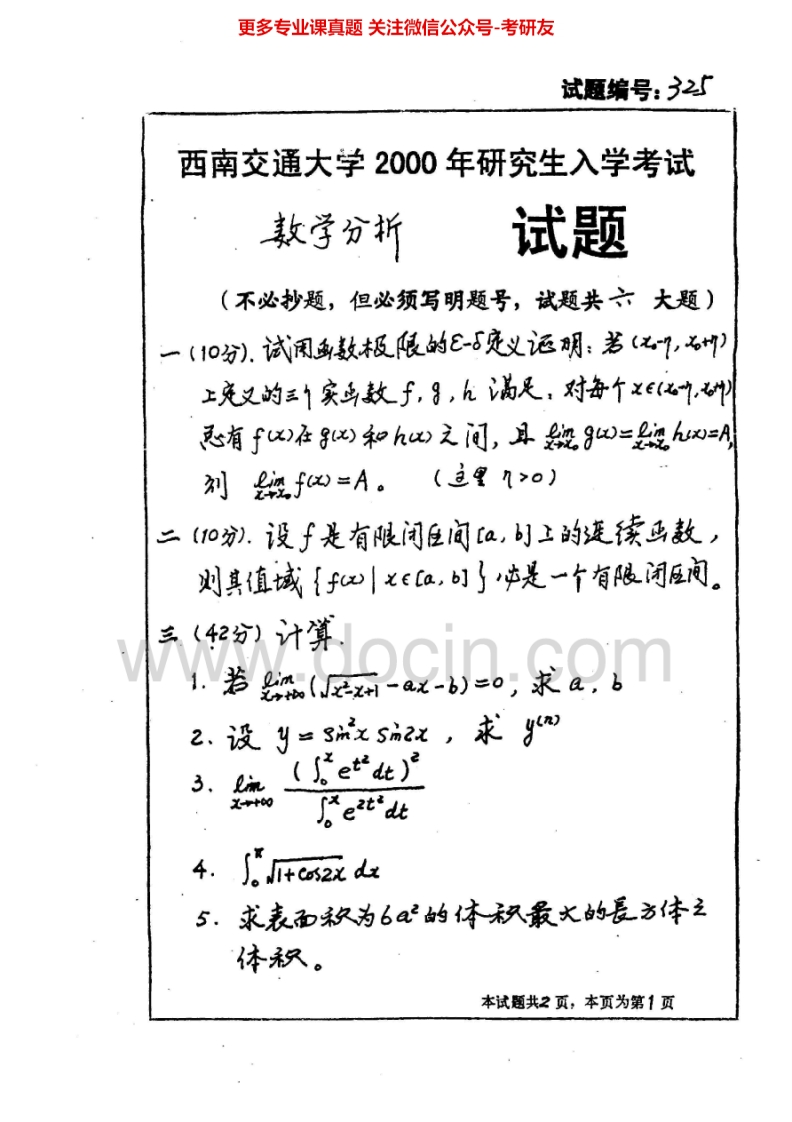 更多专业课真题 关注微信公众号-考研友
试题编号:325
西南交通大学 2000 年研究生入学考试
数学分析 试题
(不必抄题,但必须写明题号,试题共 六 大题)
一(10分). 试用函数极限的ε-δ定义证明:若(x₀-η, x₀+η)
上定义的三个实函数 f, g, h 满足:对每个 x∈(x₀-η, x₀+η)
总有 f(x)在 g(x)和 h(x)之间,且 lim_{x→x₀} g(x)=lim_{x→x₀} h(x)=A,
则 lim_{x→x₀} f(x)=A。 (这里 η>0)
二(10分). 设 f 是有限闭区间[a, b]上的连续函数,
则其值域{f(x) | x∈[a, b]}必是一个有限闭区间。
三(42分)计算.
www.docin.com
1. 若 lim_{x→+∞} (√(x²-x+1) - ax - b)=0,求 a, b
2. 设 y = sin²x sin2x,求 y⁽ⁿ⁾
3. lim_{x→+∞} (∫₀ˣ e^{t²} dt)² / ∫₀ˣ e^{2t²} dt
4. ∫₀^π √(1+cos2x) dx
5. 求表面积为6a²的体积最大的長方体之
体积。
本试题共2 页,本页为第1 页